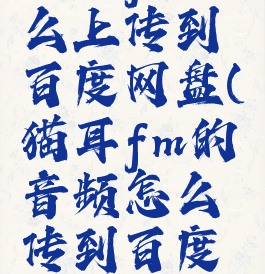 么上传到
百度网盘(
猫耳fm的
音频怎么
传到百度